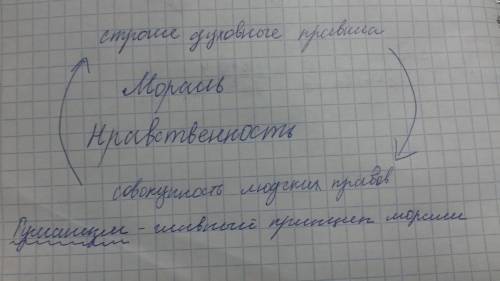 строгие духовные правила
Мораль
Нравственность
совокупность людских нравов
Гуманизм - главный принцип морали